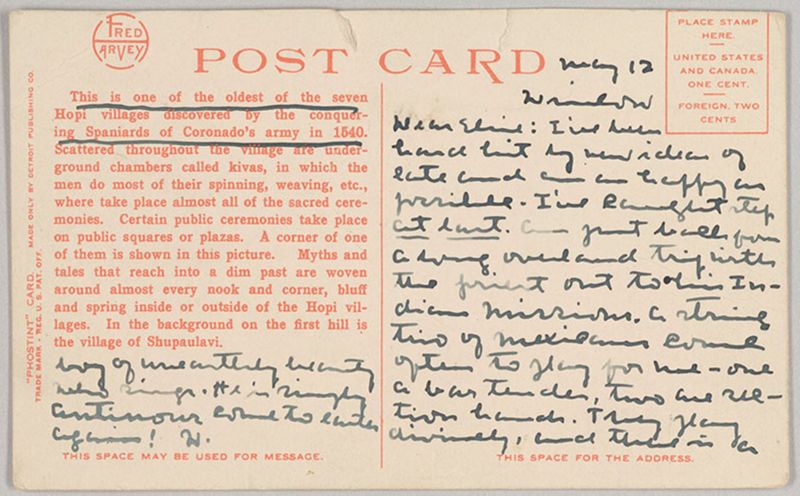 FRED HARVEY
POST CARD
PLACE STAMP
HERE.
UNITED STATES
AND CANADA,
ONE CENT.
FOREIGN, TWO
CENTS
"PHOSTINT" CARD. MADE ONLY BY DETROIT PUBLISHING CO.
TRADE MARK - REG. U.S. PAT. OFF.
This is one of the oldest of the seven
Hopi villages discovered by the conquer-
ing Spaniards of Coronado's army in 1540.
Scattered throughout the village are under-
ground chambers called kivas, in which the
men do most of their spinning, weaving, etc.,
where take place almost all of the sacred cere-
monies. Certain public ceremonies take place
on public squares or plazas. A corner of one
of them is shown in this picture. Myths and
tales that reach into a dim past are woven
around almost every nook and corner, bluff
and spring inside or outside of the Hopi vil-
lages. In the background on the first hill is
the village of Shupaulavi.
May 12
Winslow
Dear Elsie: I've been
hard hit by new ideas of
late and am as happy as
possible. I've caught step
at last. Am just back from
a long overland trip with
the priest out to his In-
dian missions. A string
trio of Mexicans come
often to play for me - one
a bar tender, two are sec-
tion hands. They play
divinely, and there is a
boy of unearthly beauty
who sings. He is simply
Antinous come to earth
again! W.
THIS SPACE MAY BE USED FOR MESSAGE.
THIS SPACE FOR THE ADDRESS.